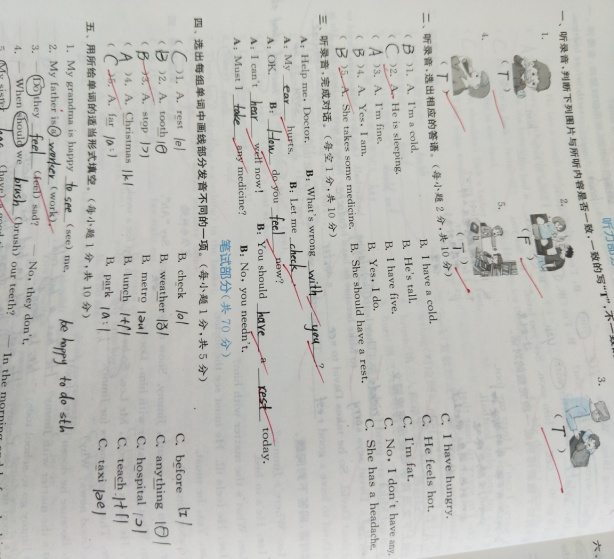 听力部分
一、听录音,判断下列图片与所听内容是否一致,一致的写"T",不一致
1. ( T ) 2. ( F ) 3. ( T )
4. ( T ) 5. ( T )
二、听录音,选出相应的答语。(每小题 2 分,共 10 分)
( B )1. A. I'm a cold. B. I have a cold. C. I have hungry.
( C )2. A. He is sleeping. B. He's tall. C. He feels hot.
( A )3. A. I'm fine. B. I have five. C. I'm fat.
( B )4. A. Yes, I am. B. Yes, I do. C. No, I don't have any.
( B )5. A. She takes some medicine. B. She should have a rest. C. She has a headache.
三、听录音,完成对话。(每空 1 分,共 10 分)
A: Help me, Doctor. B: What's wrong with you ?
A: My ear hurts. B: Let me check.
A: OK. B: How do you feel now?
A: I can't hear well now! B: You should have a rest today.
A: Must I take any medicine? B: No, you needn't.
笔试部分(共 70 分)
四、选出每组单词中画线部分发音不同的一项。(每小题 1 分,共 5 分)
( C )1. A. rest /e/ B. check /e/ C. before /ɪ/
( B )2. A. tooth /θ B. weather /ð/ C. anything /θ/
( B )3. A. stop /ɔ/ B. metro /əu/ C. hospital /ɔ/
( A )4. A. Christmas /k/ B. lunch /tʃ/ C. teach /tʃ/
( C )5. A. far /ɑː/ B. park /ɑː/ C. taxi /æ/
五、用所给单词的适当形式填空。(每小题 1 分,共 10 分)
1. My grandma is happy to see (see) me. be happy to do sth
2. My father is a worker. (work)
3. — Do they feel (feel) sad? — No, they don't.
4. — When should we brush (brush) our teeth? — In the morning
5. My sister has (have)